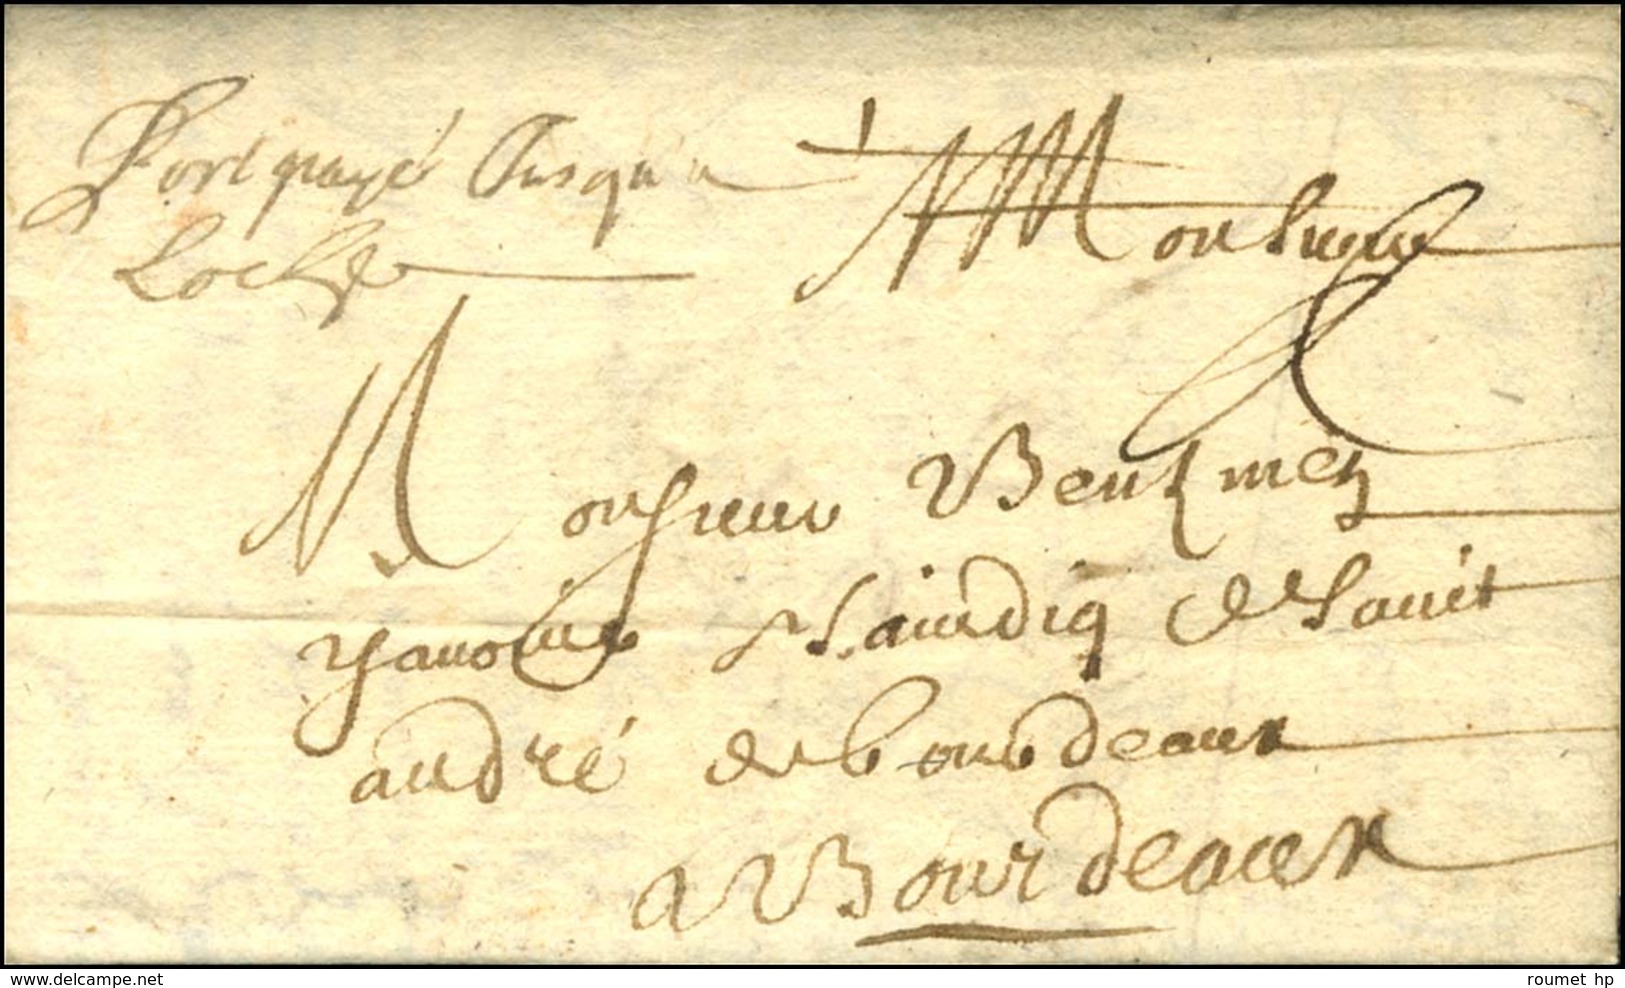 Port payé Jusqu'a
Monsieur
Monsieur
chanoine Saindiq de Saint
andré de bourdeaux
a Bourdeaux
delcampe.net
roumet hp